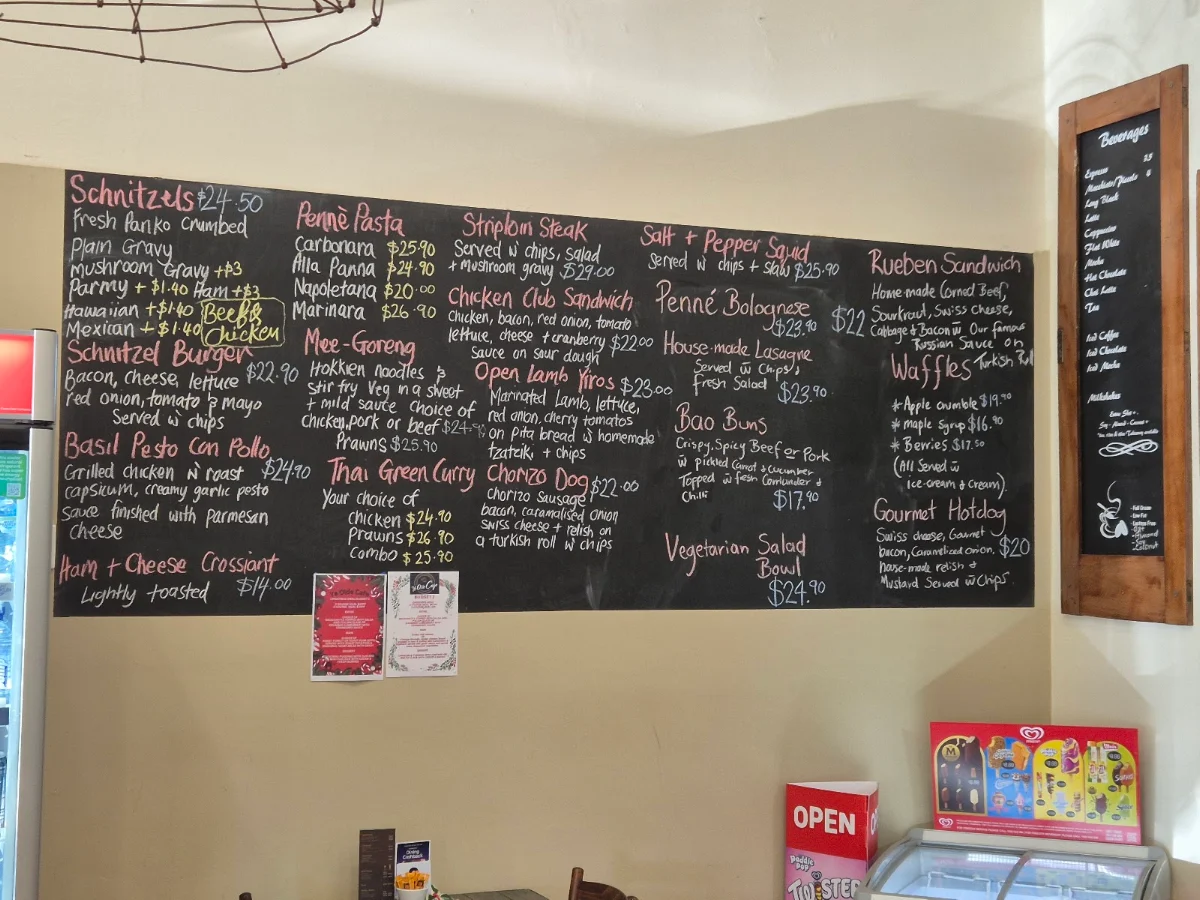 Schnitzels $24.50
Fresh Panko Crumbed
Plain Gravy
Mushroom Gravy +$3
Parmy + $1.40 Ham +$3
Hawaiian +$1.40
Mexican +$1.40
Beef &
Chicken
Schnitzel Burger
Bacon, cheese, lettuce $22.90
red onion, tomato & mayo
Served w chips
Basil Pesto Con Pollo
Grilled chicken N roast $24.90
capsicum, creamy garlic pesto
sauce finished with parmesan
cheese
Ham + Cheese Crossiant
Lightly toasted $14.00
Pennè Pasta
Carbonara $25.90
Alla Panna $24.90
Napoletana $20.00
Marinara $26.90
Mee-Goreng
Hokkien noodles &
stir fry Veg in a sweet
+ mild sauce choice of
chicken, pork or beef $24.90
Prawns $25.90
Thai Green Curry
Your choice of
chicken $24.90
Prawns $26.90
Combo $25.90
Striploin Steak
Served w chips, salad
+ mushroom gravy $29.00
Chicken Club Sandwich
chicken, bacon, red onion, tomato
lettuce, cheese + cranberry $22.00
sauce on sour dough
Open Lamb Yiros $23.00
Marinated Lamb, lettuce,
red onion, cherry tomatos
on Pita bread w homemade
tzateiki, + chips
Chorizo Dog $22.00
chorizo sausage
bacon, caramalised onion
swiss cheese + relish on
a turkish roll w chips
Salt + Pepper Squid
Served w chips + slaw $25.90
Penné Bolognese
$23.90
House-made Lasagne
Served w Chips,
Fresh Salad
$23.90
Bao Buns
Crispy, Spicy Beef or Pork
w pickled Carrot & Cucumber
Topped w fresh Corriander &
Chilli
$17.90
Vegetarian Salad
Bowl
$24.90
Rueben Sandwich
Home-made Corned Beef,
$22 Sourkraut, Swiss cheese,
Cabbage & Bacon w Our famous
Russian Sauce on
Turkish Roll
Waffles
* Apple crumble $19.90
* maple syrup $16.90
* Berries $17.50
(All Served w
ice-cream & cream)
Gourmet Hotdog
Swiss cheese, Gourmet
bacon, Caramelized onion, $20
house-made relish &
Mustard Served w Chips.
Beverages
Espresso
Long Black
Latte
Cappuccino
Flat White
Mocha
Hot Chocolate
Chai Latte
Tea
Iced Coffee
Iced Chocolate
Iced Mocha
Milkshakes
Ye Olde Cafe
OPEN
Paddle
Pop
TWISTER